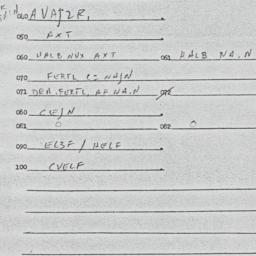 010 AVAJ2R,
050 AXT
060 HALB NUX AXT 061 HALB NA.N
070 FERTL C= NAJN
071 DEA.FERTL, AF NA.N 072
080 CEJN
081 O 082 O
090 ELSF / HELF
100 CVELF